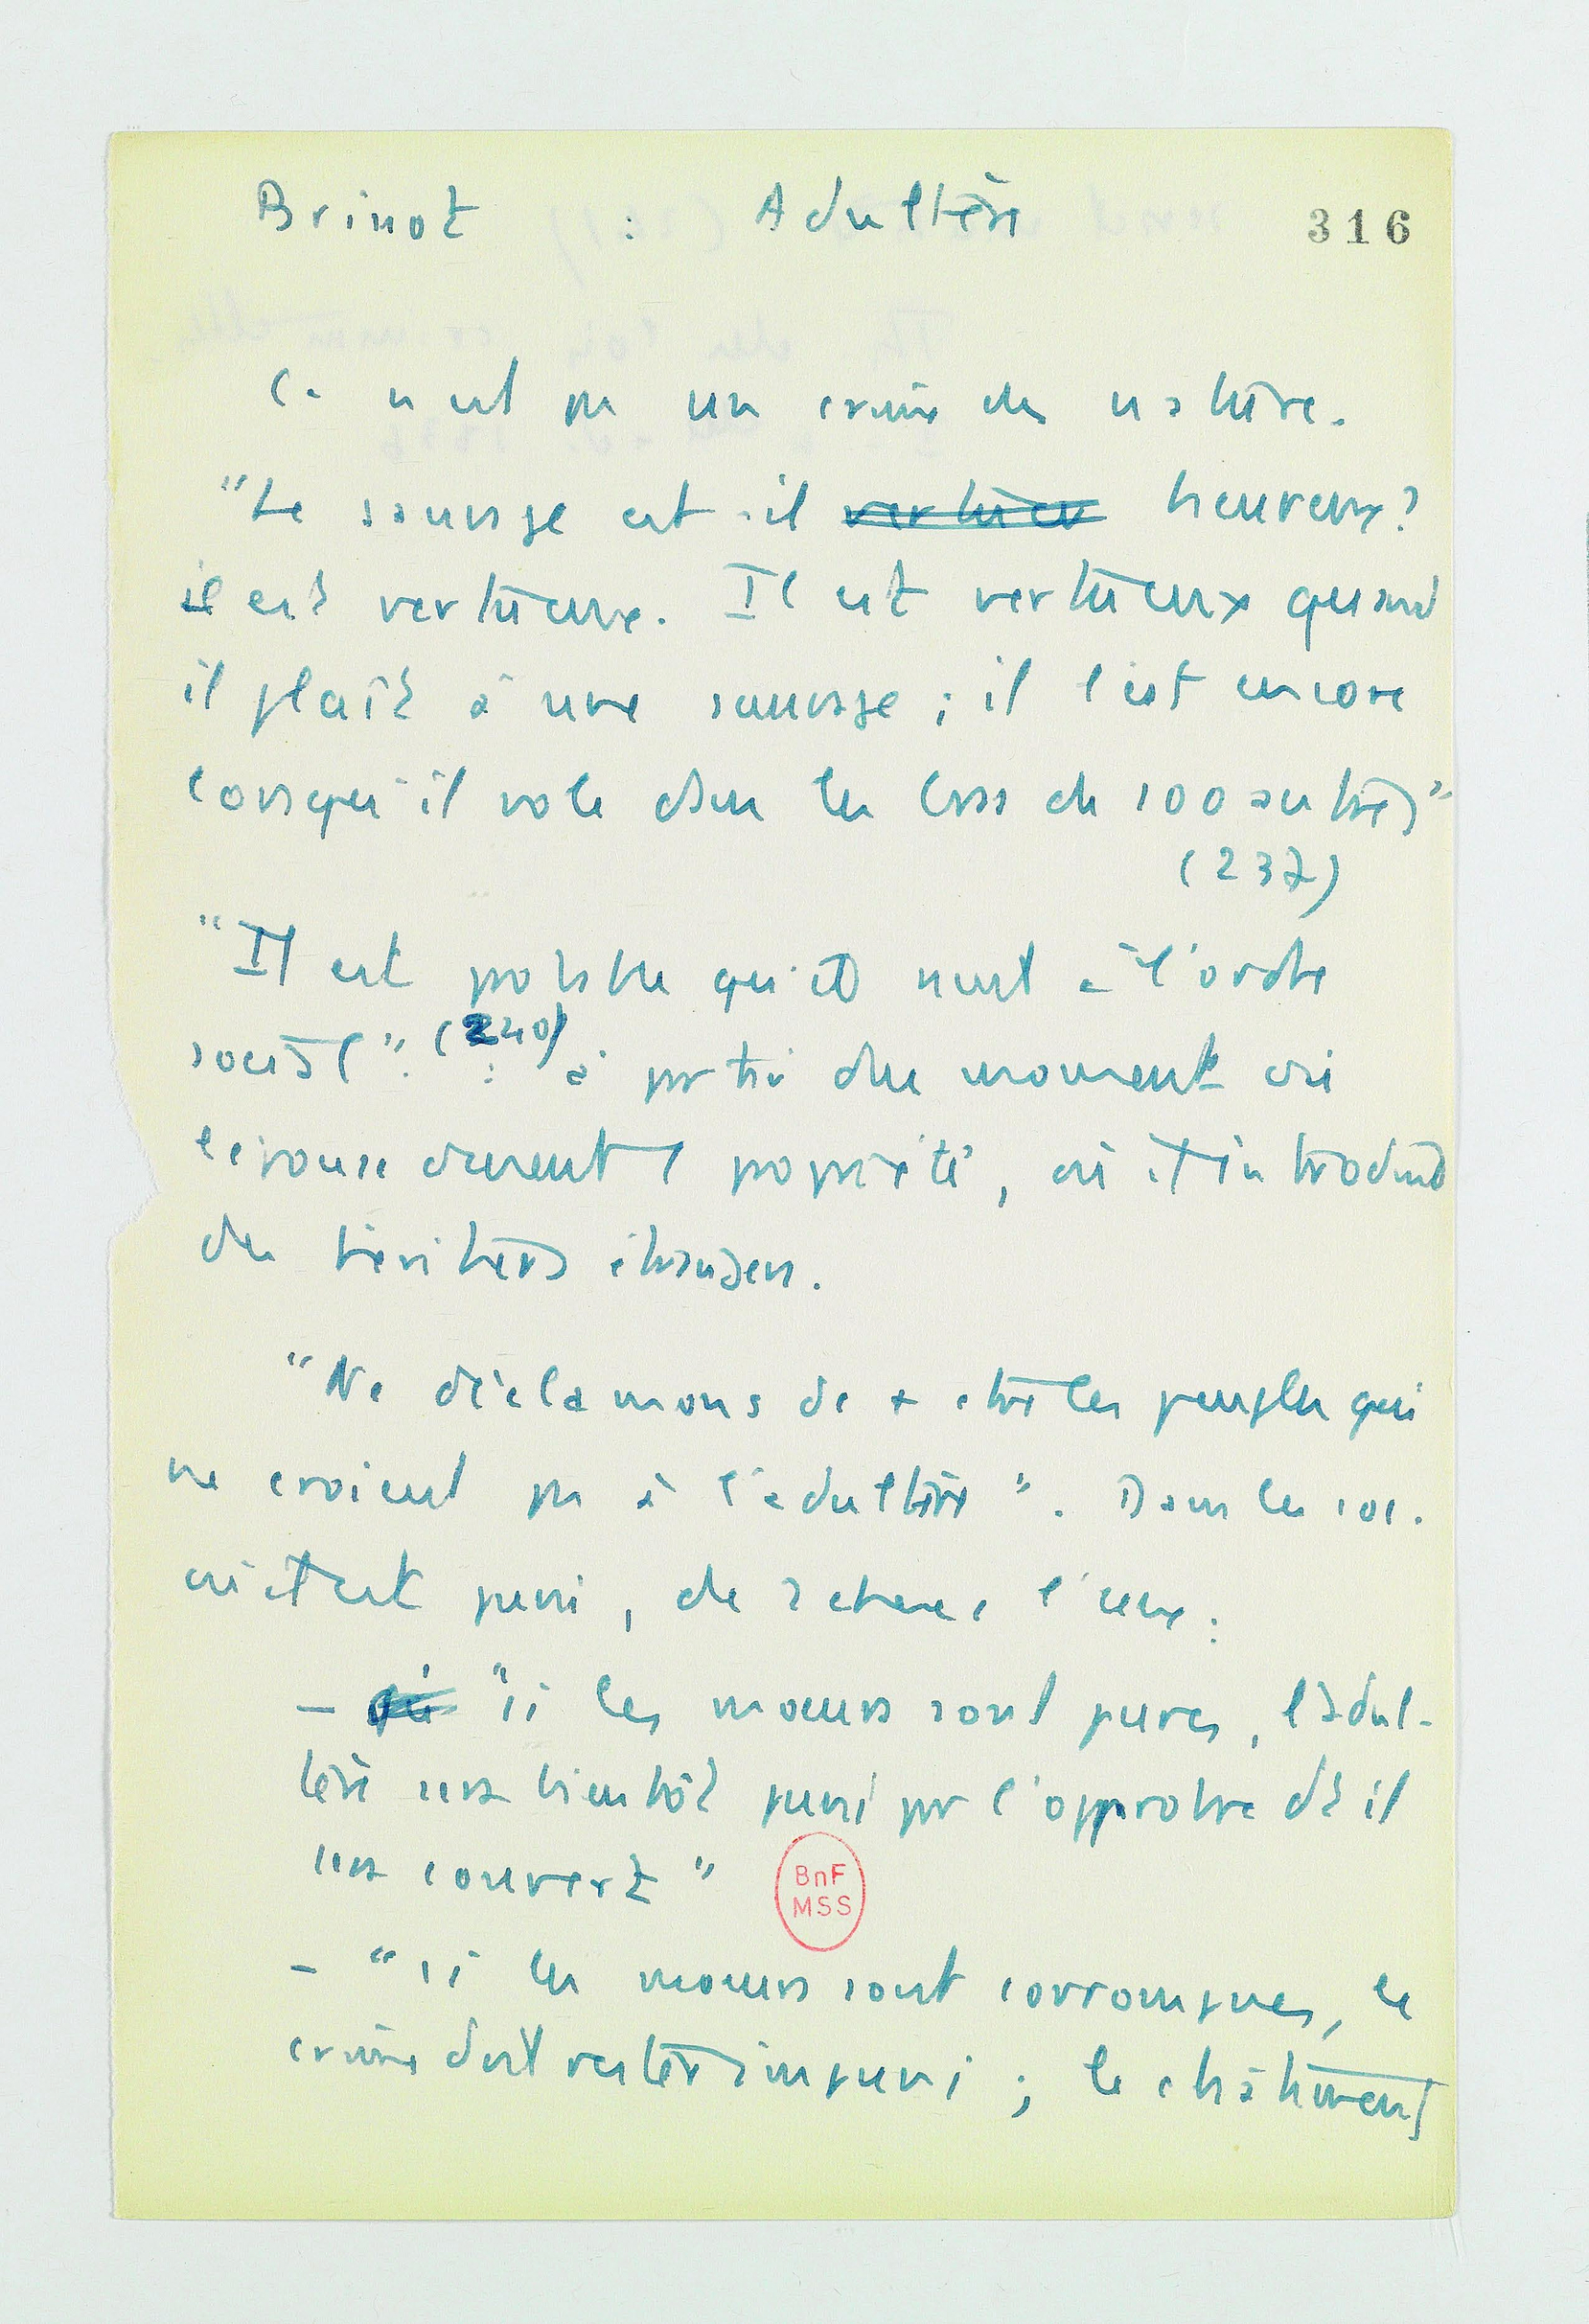 Brissot : Adultère
316
Ce n'est pas un crime de nature.
"Le sauvage est-il vertueu heureux?
il est vertueux. Il est vertueux quand
il plaît à une sauvage ; il l'est encore
lorsqu'il vole dans les bras de 100 autres"
(237)
"Il est possible qu'il nuit à l'ordre
social". (240) : à partir du moment où
l'épouse devient propriété, où il introduit
des héritiers étrangers.
"Ne déclamons dc + ctre les peuples qui
ne croient pas à l'adultère". Dans les soc.
où il est puni, de 2 choses l'une :
- si "si les moeurs sont pures, l'adul-
tère sera bientôt puni par l'opprobre dt il
sera couvert"
BnF
MSS
- "si les moeurs sont corrompues, le
crime doit rester impuni ; le châtiment